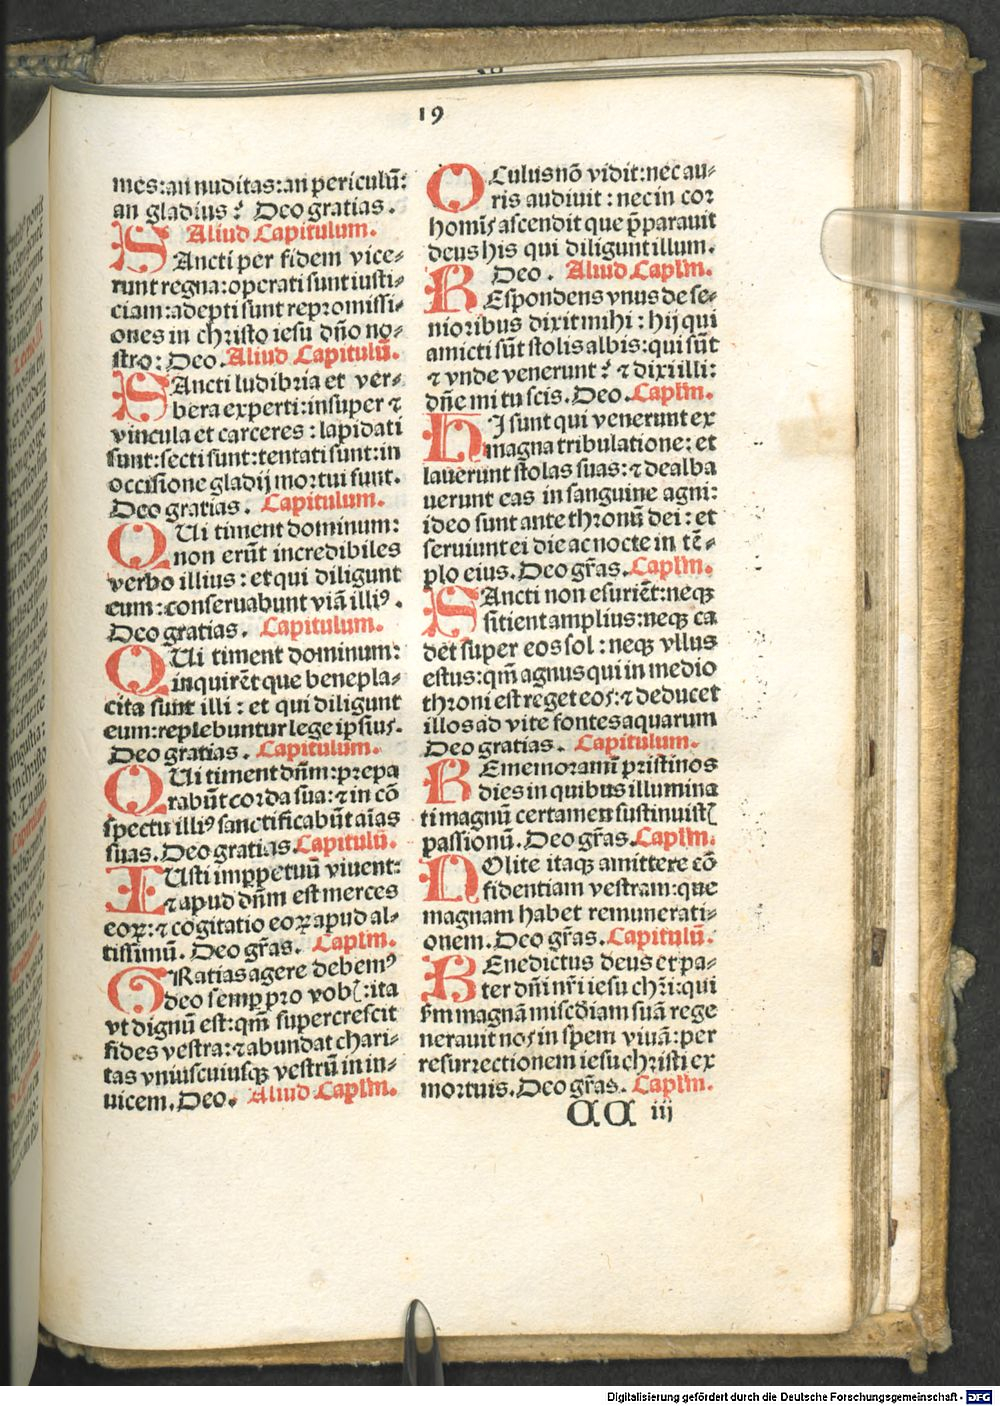 19
mes:an nuditas:an periculū:
an gladius? Deo gratias.
Aliud Capitulum.
SAncti per fidem vice-
runt regna:operati sunt iusti-
ciam:adepti sunt repromissi-
ones in christo iesu dño no-
stro: Deo. Aliud Capitulū.
SAncti ludibria et ver-
bera experti:insuper ⁊
vincula et carceres: lapidati
sunt:secti sunt:tentati sunt:in
occisione gladij mortui sunt.
Deo gratias. Capitulum.
QUi timent dominum:
non erūt incredibiles
verbo illius: et qui diligunt
eum:conseruabunt viā illiꝰ.
Deo gratias. Capitulum.
QUi timent dominum:
inquirēt que benepla-
cita sunt illi: et qui diligunt
eum:replebuntur lege ipsius.
Deo gratias. Capitulum.
QUi timent dñm:prepa
rabūt corda sua:⁊ in cō
spectu illiꝰ sanctificabūt aīas
suas. Deo gratias. Capitulū.
IUsti imꝑpetuū viuent:
⁊ apud dñm est merces
eoꝝ:⁊ cogitatio eoꝝ apud al-
tissimū. Deo gr̄as. Caplm̄.
GRatias agere debemꝰ
deo semꝑ pro vob̄:ita
vt dignū est:qm̄ supercrescit
fides vestra:⁊ abundat chari-
tas vniuscuiusqꝫ vestrū in in-
uicem. Deo. Aliud Caplm̄.
OCulus nō vidit:nec au-
ris audiuit: nec in cor
homis ascendit que p̄parauit
deus his qui diligunt illum.
Deo. Aliud Caplm̄.
REspondens vnus de se-
nioribus dixit mihi: hij qui
amicti sūt stolis albis:qui sūt
⁊ vnde venerunt? ⁊ dixi illi:
dñe mi tu scis. Deo. Caplm̄.
HIj sunt qui venerunt ex
magna tribulatione: et
lauerunt stolas suas:⁊ dealba
uerunt eas in sanguine agni:
ideo sunt ante thronū dei: et
seruiunt ei die ac nocte in tē-
plo eius. Deo gr̄as. Caplm̄.
SAncti non esuriēt:neqꝫ
sitient amplius:neqꝫ ca
det super eos sol: neqꝫ vllus
estus:qm̄ agnus qui in medio
throni est reget eos:⁊ deducet
illos ad vite fontes aquarum
Deo gratias. Capitulum.
REmemoramī pristinos
dies in quibus illumina
ti magnū certamen sustinuistꝭ
passionū. Deo gr̄as. Caplm̄.
NOlite itaqꝫ amittere cō
fidentiam vestram:que
magnam habet remunerati-
onem. Deo gr̄as. Capitulū.
BEnedictus deus et pa-
ter dñi nr̄i iesu chr̄i:qui
s̄m magnā misc̄diam suā rege
nerauit nos in spem viuā:per
resurrectionem iesu christi ex
mortuis. Deo gr̄as. Caplm̄.
AA iij
Digitalisierung gefördert durch die Deutsche Forschungsgemeinschaft - DFG